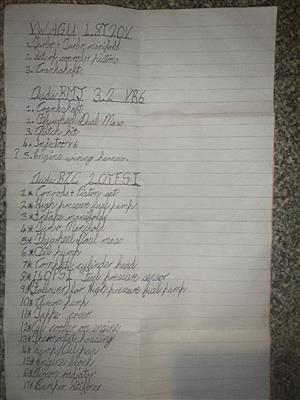 VW AGU 1.8T 20V
1. Turbo + Turbo manifold
2. Set of conrods + pistons
3. Crankshaft.
Audi BMJ 3.2 VR6
1. Crankshaft
2. Flywheel Dual Mass
3. Clutch kit
4. Injector x6
? 5. Engine wiring harness.
Audi BZC 2.0TFSI
1* Conrods + Piston set
2* High pressure fuel pump
3* Intake manifold
4* Turbo Manifold
5* Flywheel Dual mass
6* Oil pump
7* Complete cylinder head
8* 140 FSI Fuel pressure sensor
9* Follower for High pressure fuel pump
10* Vacuum pump
11* Tappet cover
12* Oil cooler on engine
13* Thermostat housing
14* Sump/Oil pan
15* Engine block
16* Aircon radiator
17* Bumper stiffner